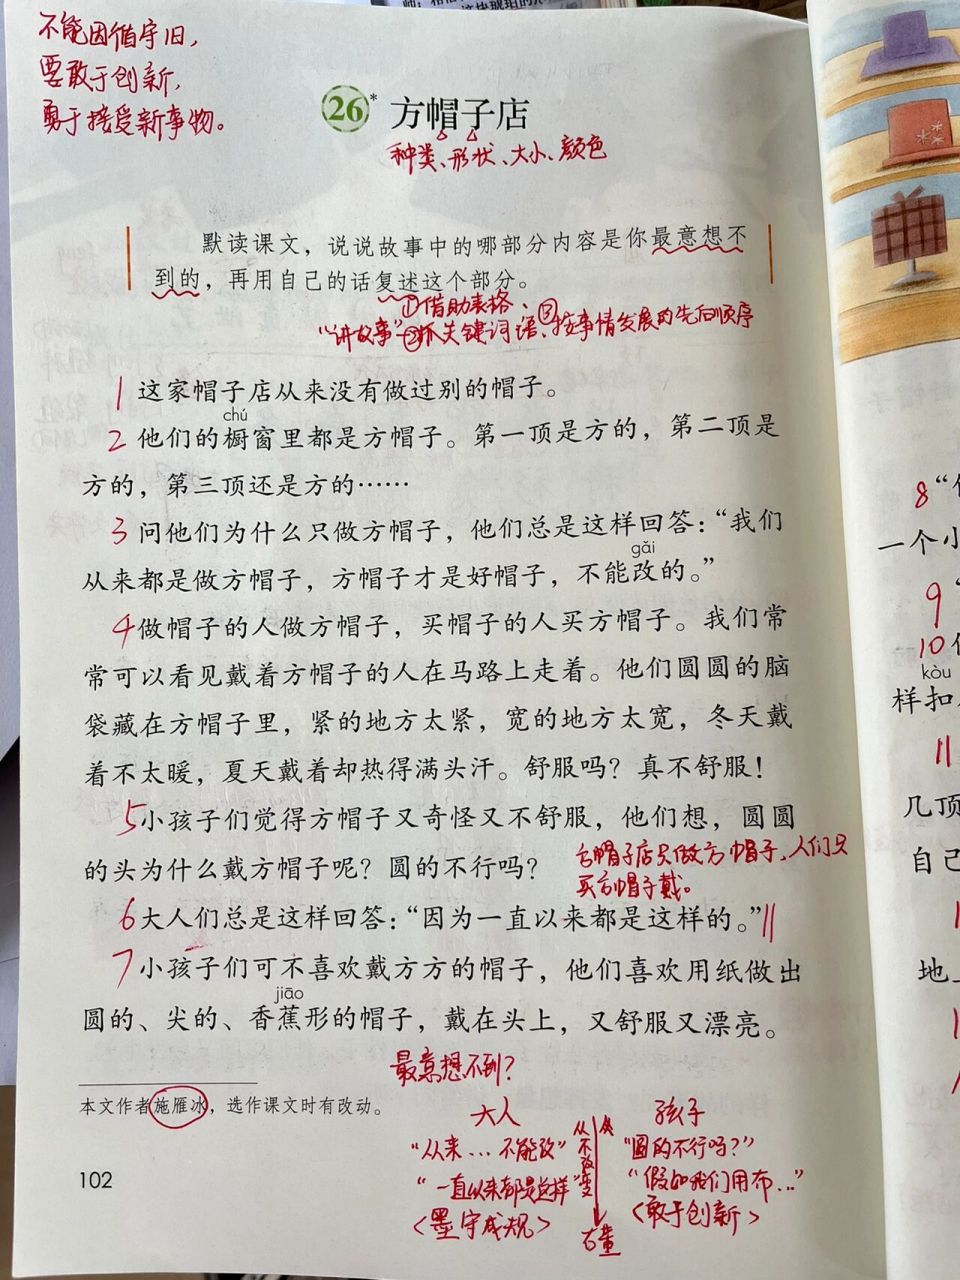 不能因循守旧，
要敢于创新，
勇于接受新事物。
26* 方帽子店
种类、形状、大小、颜色
默读课文，说说故事中的哪部分内容是你最意想不
到的，再用自己的话复述这个部分。
①借助表格、
"讲故事"②抓关键词语、③按事情发展的先后顺序
1 这家帽子店从来没有做过别的帽子。
chú
2 他们的橱窗里都是方帽子。第一顶是方的，第二顶是
方的，第三顶还是方的……
3 问他们为什么只做方帽子，他们总是这样回答：“我们
gǎi
从来都是做方帽子，方帽子才是好帽子，不能改的。”
4 做帽子的人做方帽子，买帽子的人买方帽子。我们常
常可以看见戴着方帽子的人在马路上走着。他们圆圆的脑
袋藏在方帽子里，紧的地方太紧，宽的地方太宽，冬天戴
着不太暖，夏天戴着却热得满头汗。舒服吗？真不舒服！
5 小孩子们觉得方帽子又奇怪又不舒服，他们想，圆圆
的头为什么戴方帽子呢？圆的不行吗？
方帽子店只做方帽子，人们只
买方帽子戴。
6 大人们总是这样回答：“因为一直以来都是这样的。”
7 小孩子们可不喜欢戴方方的帽子，他们喜欢用纸做出
jiāo
圆的、尖的、香蕉形的帽子，戴在头上，又舒服又漂亮。
最意想不到？
本文作者施雁冰，选作课文时有改动。
大人 孩子
"从来…不能改" "圆的不行吗？"
"一直以来都是这样" "假如我们用布…"
<墨守成规> <敢于创新>
从不改变
古董
102
8 “
一个小
9
10
kòu
样扣
11
几顶
自己
地